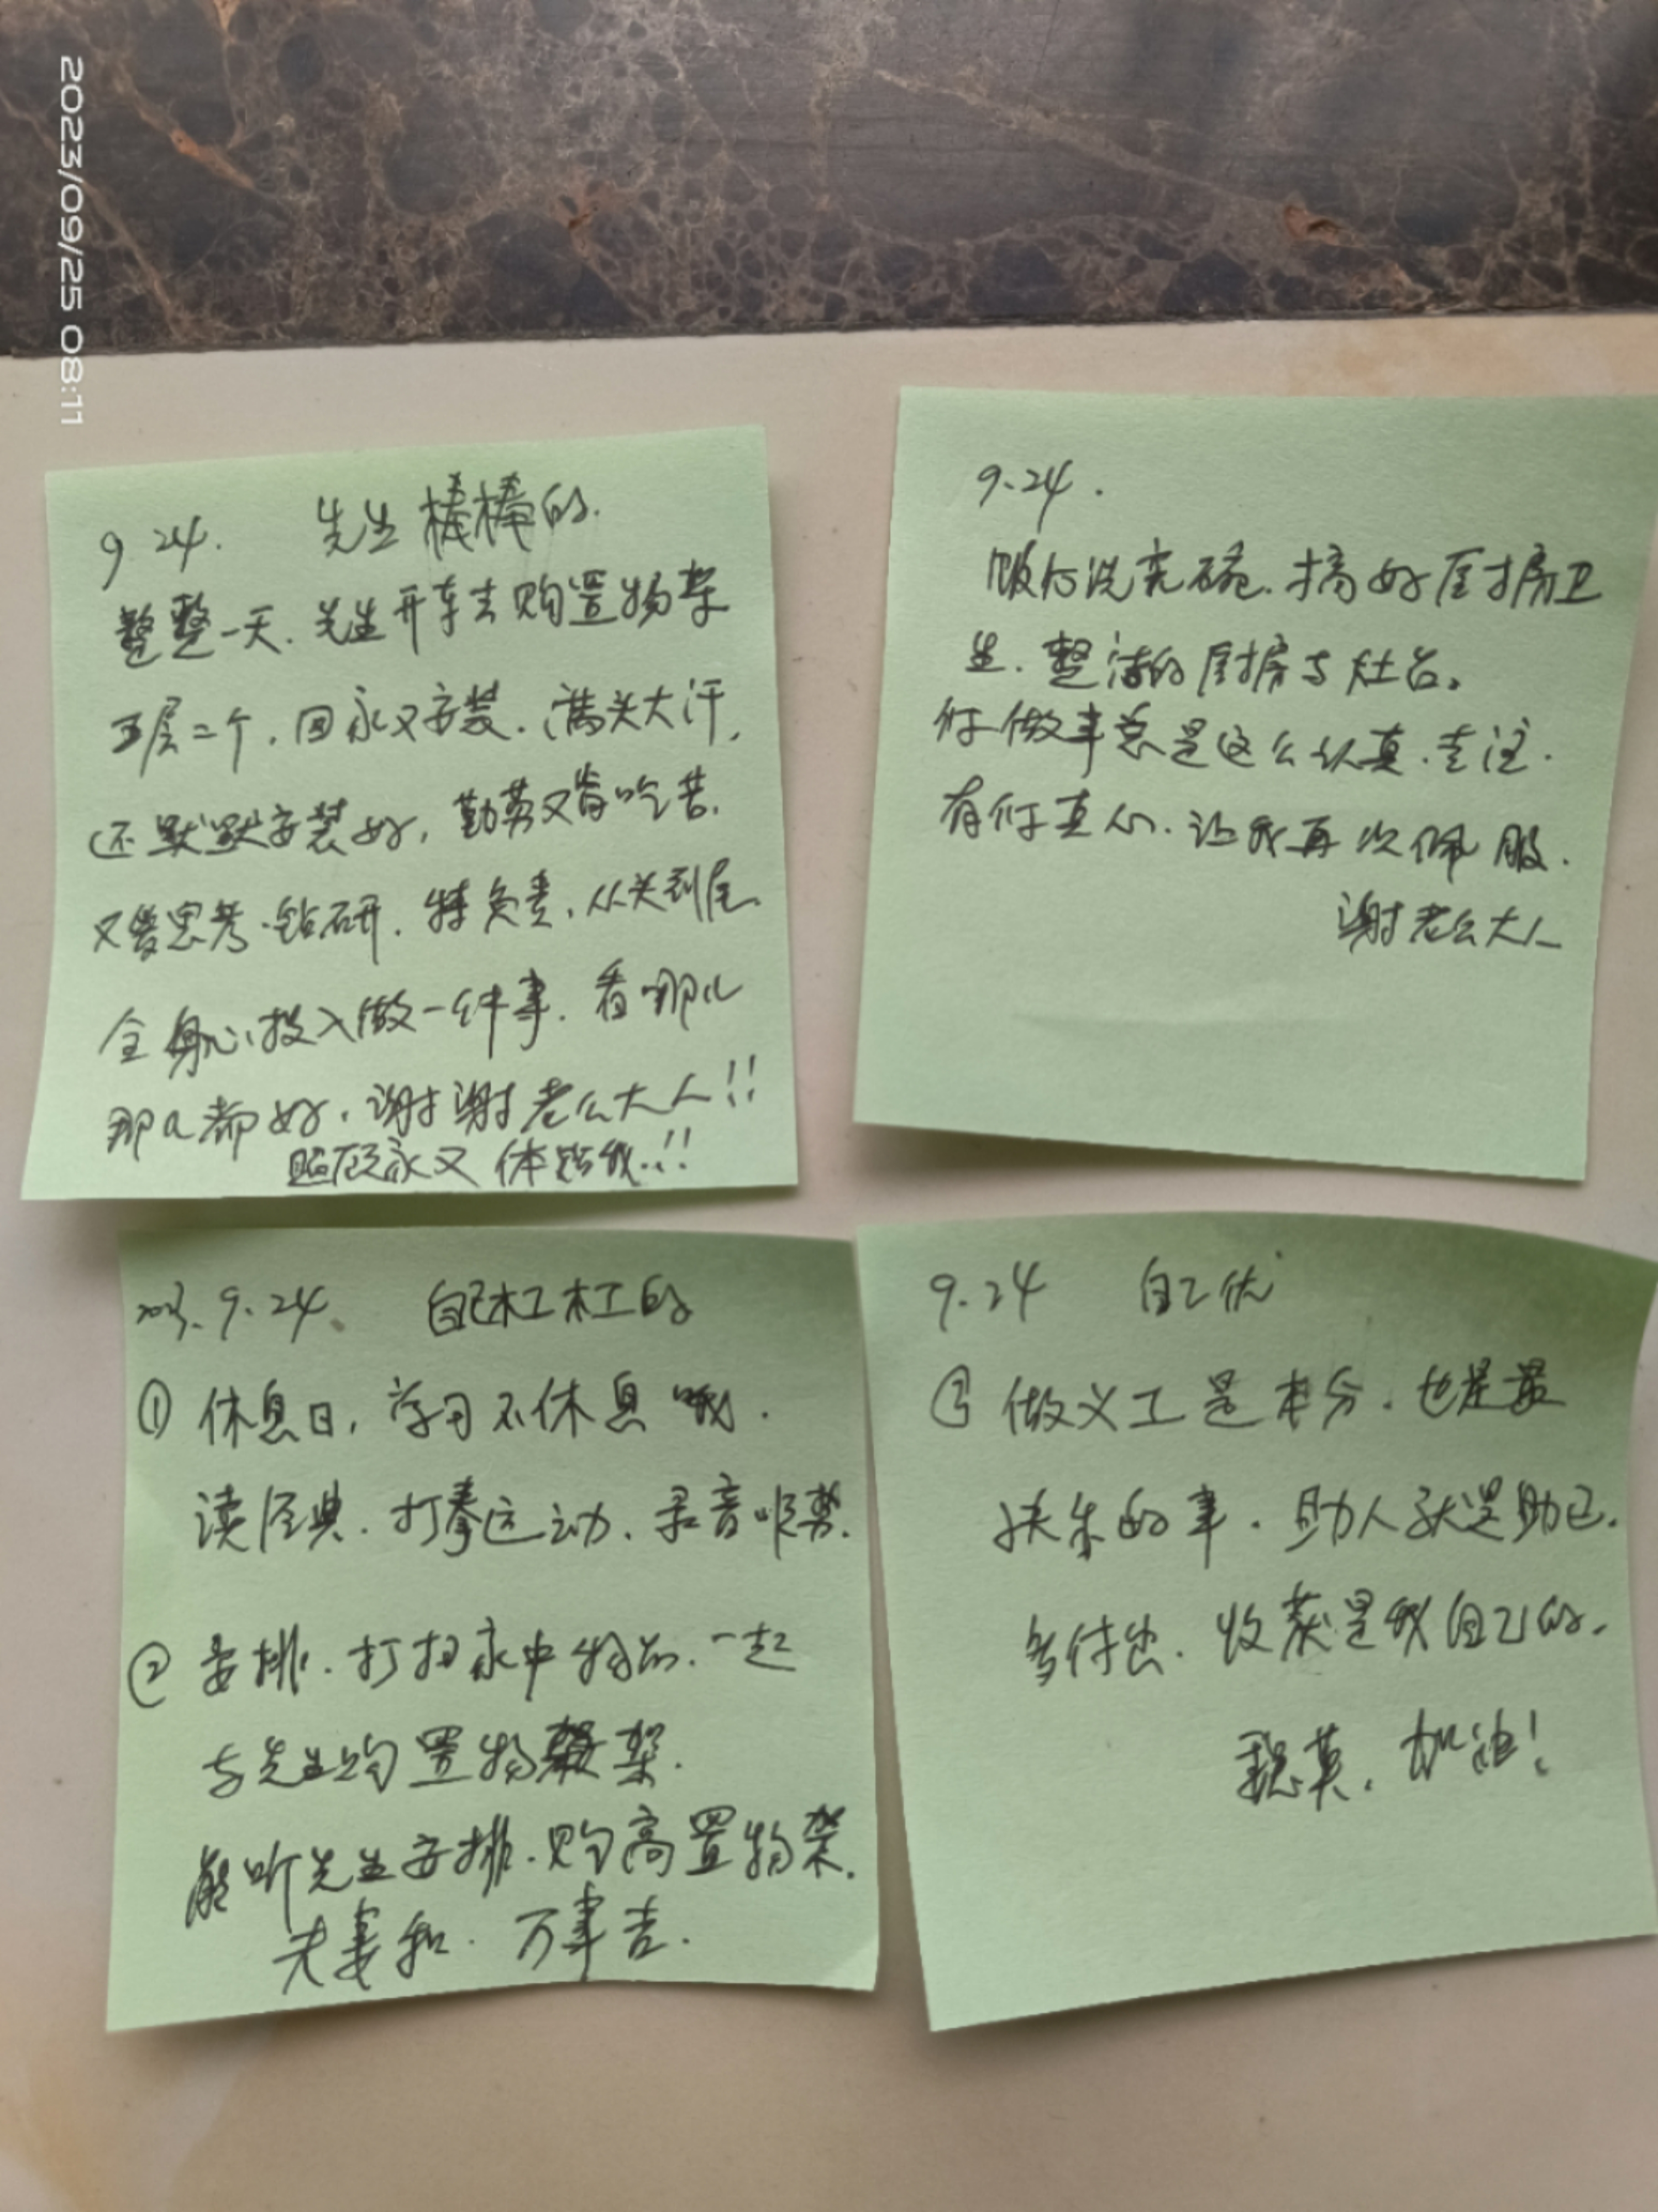 2023/09/25 08:11
9.24. 先生棒棒的.
整整一天.先生开车去购置物架
五层二个.回家又安装.满头大汗,
还默默安装好,勤劳又肯吃苦.
又爱思考.钻研.特负责,从头到尾.
全身心投入做一件事.看哪儿
那儿都好.谢谢老公大人!!
照顾家又体贴我.!!
9.24.
饭后洗完碗.搞好厨房卫
生.整洁的厨房与灶台。
你做事总是这么认真.专注.
有你真心.让我再次佩服.
谢老公大人
2023.9.24. 自己杠杠的
① 休息日,学习不休息哦.
读经典.打拳运动.录音
② 安排.打扫家中物品.一起
与先生购置物架.
能听先生安排.购高置物架.
夫妻和.万事吉.
9.24 自己优
③ 做义工是本分.也是最
快乐的事.助人就是助己.
多付出.收获是我自己的.
英,加油!